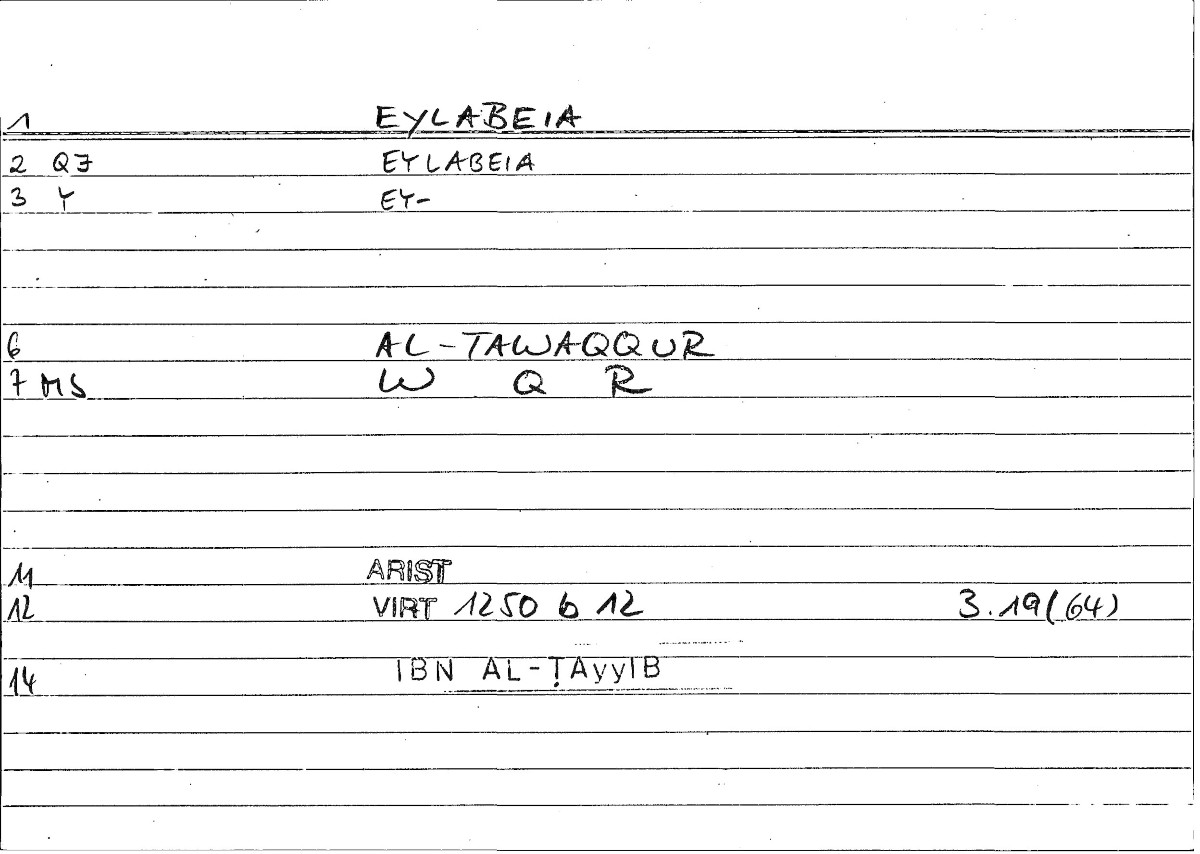 1 EYLABEIA
2 QJ EYLABEIA
3 Y EY-
6 AL-TAWAQQUR
7 MS W Q R
11 ARIST
12 VIRT 1250 b 12 3.19(64)
14 IBN AL-ṬAyyIB